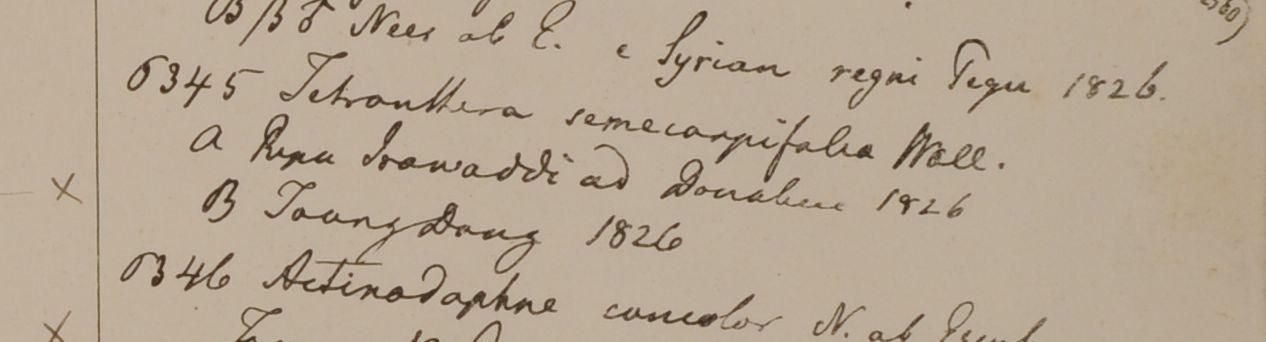 B β δ Nees ab E. e Syrian regni Pegu 1826.
6345 Tetranthera semecarpifolia Wall.
a Ripa Irawaddi ad Donabue 1826
B Toung Dong 1826
6346 Actinodaphne concolor N. ab Esenb